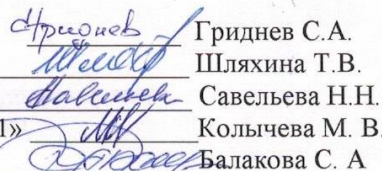 Гриднев С.А.
Шляхина Т.В.
Савельева Н.Н.
1» Колычева М. В.
Балакова С. А